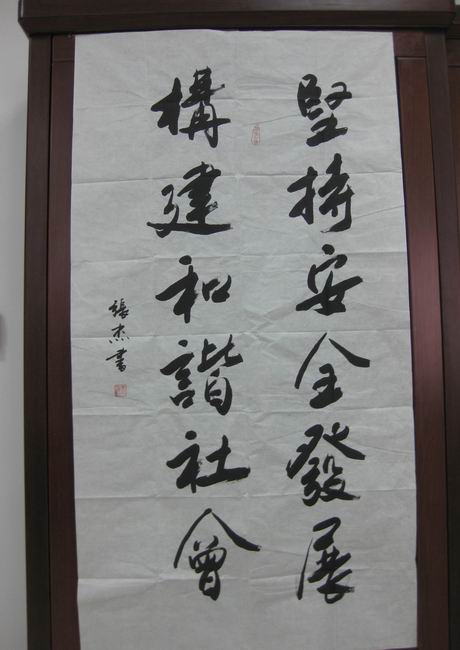 堅持安全發展
構建和諧社會
張杰書